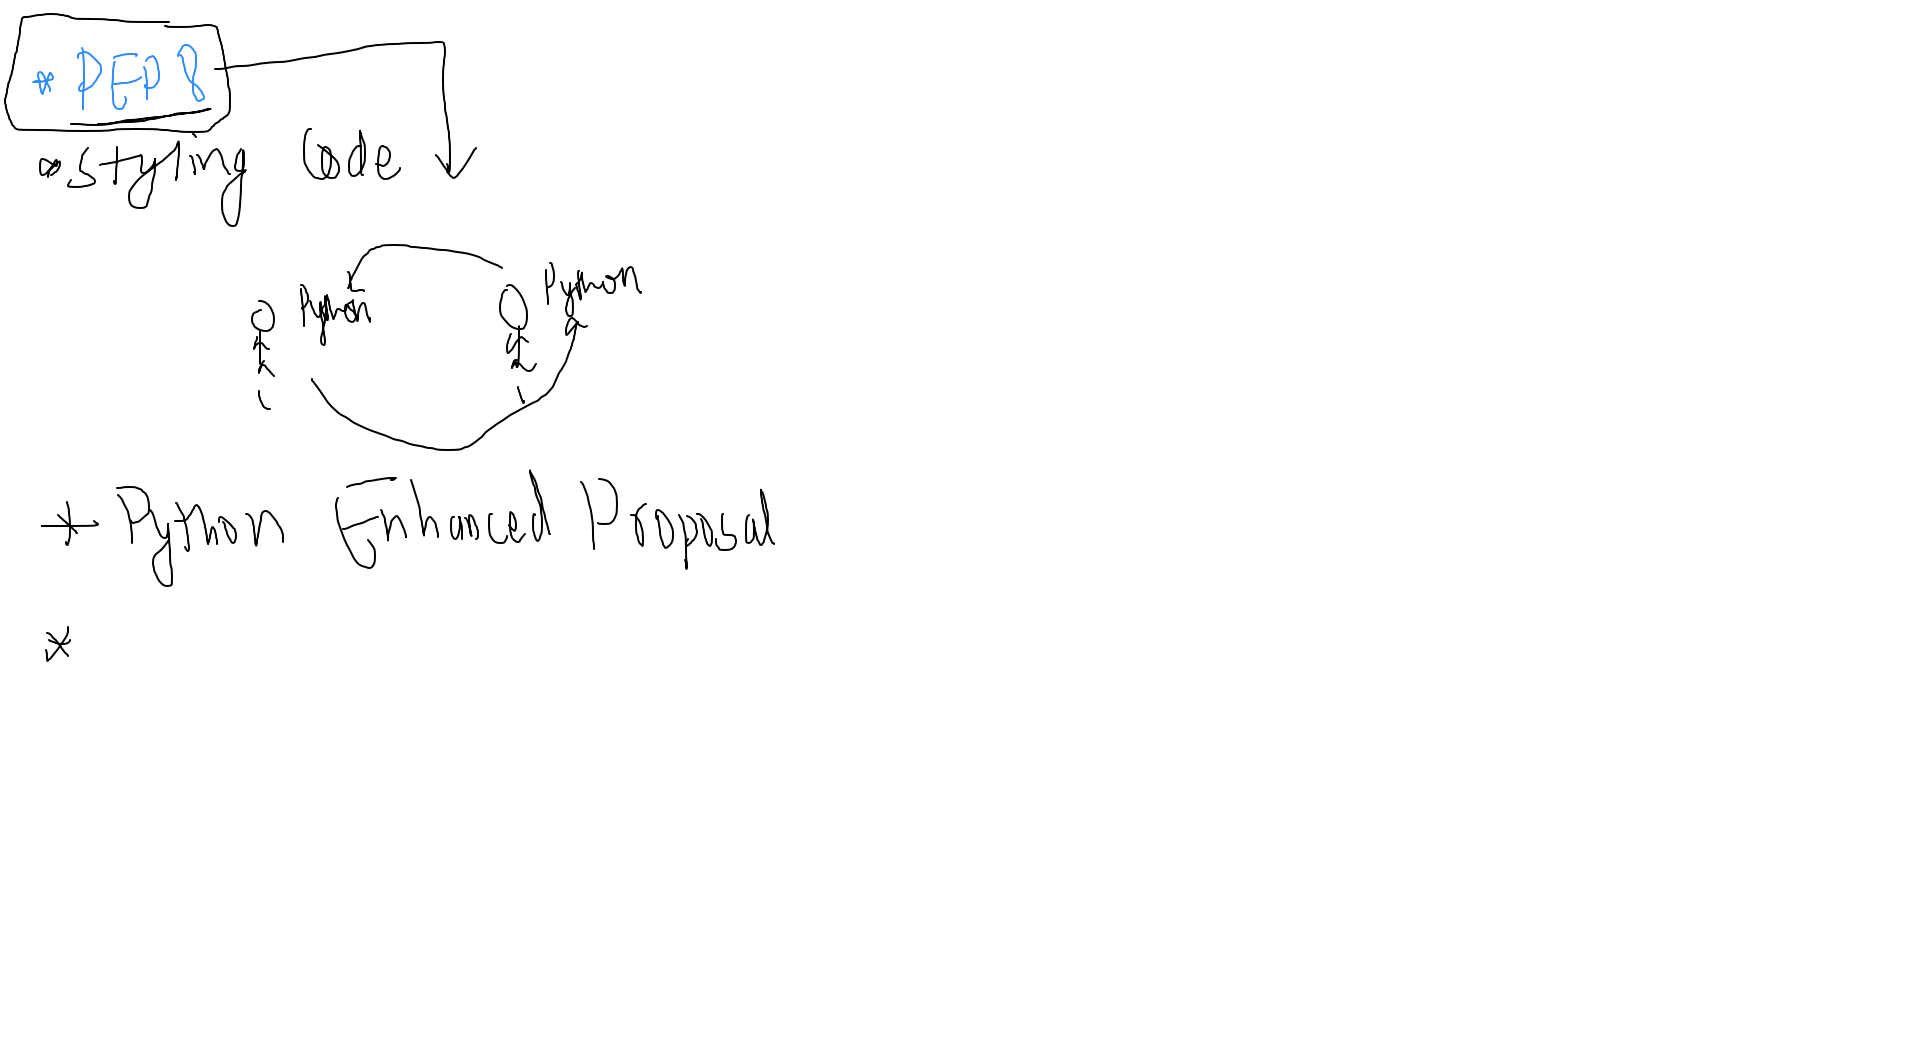 * PEP 8
* styling Code
Python Python
* Python Enhanced Proposal
*